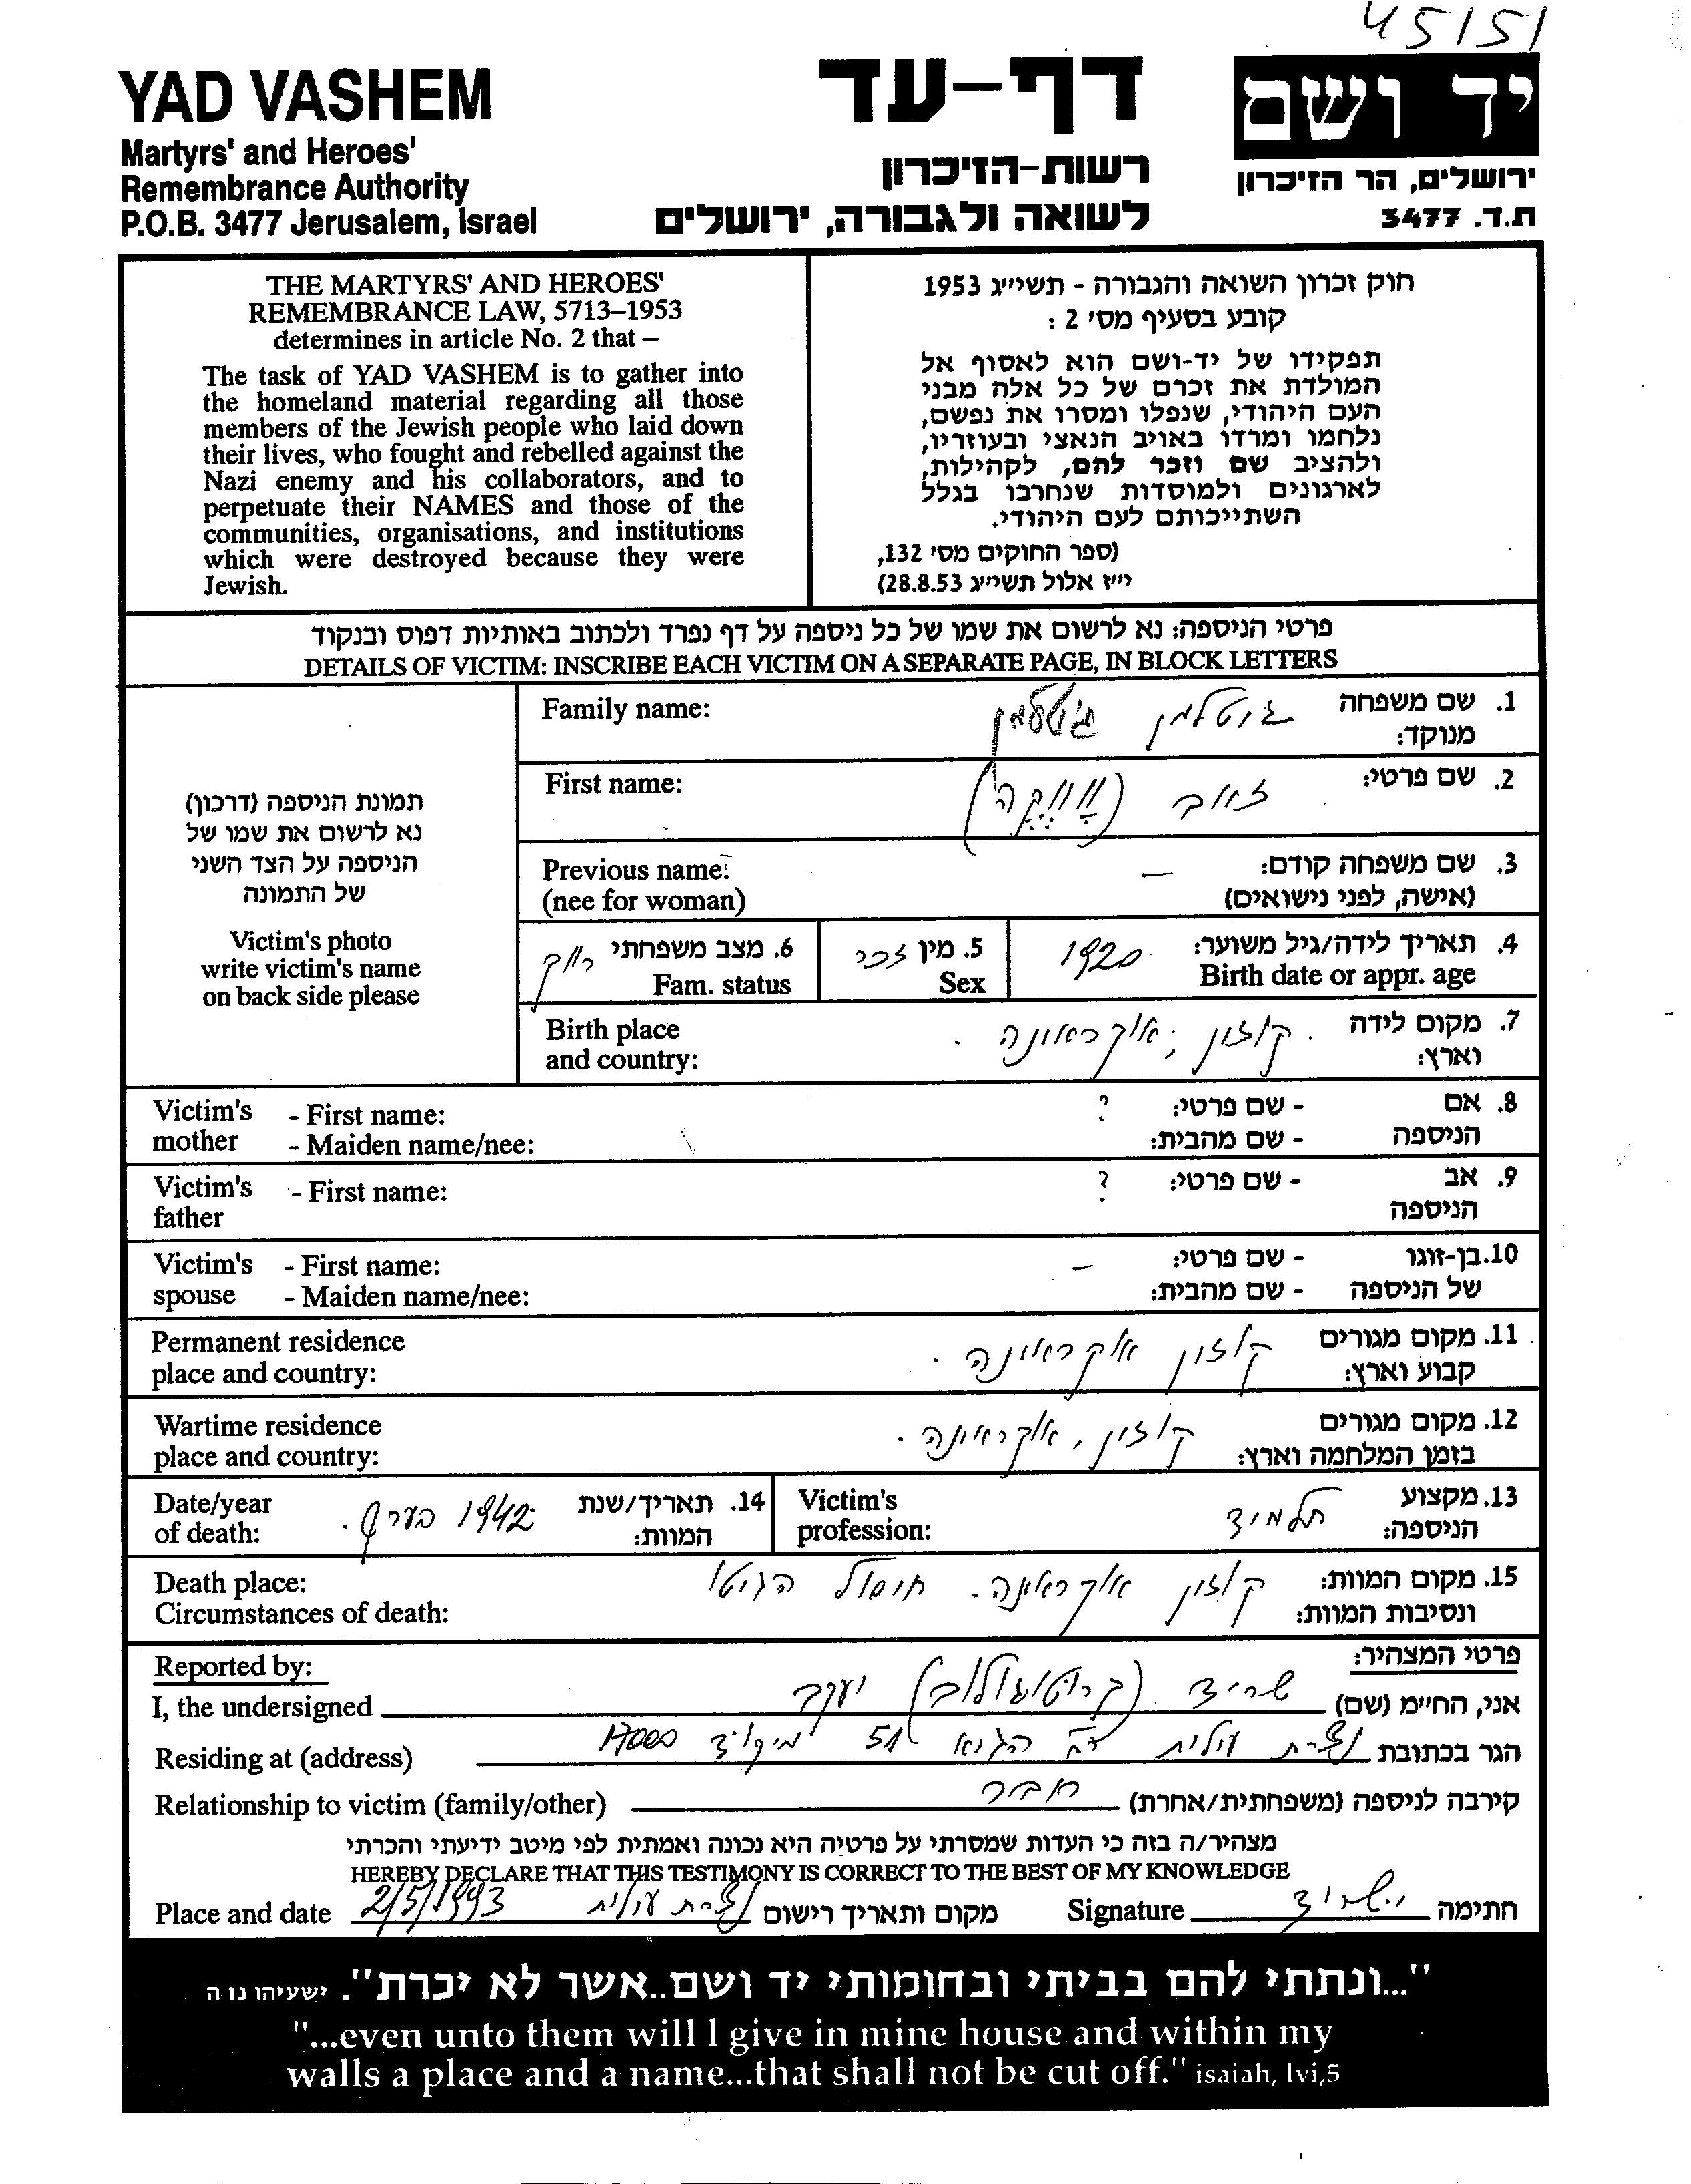 45151
YAD VASHEM
Martyrs' and Heroes'
Remembrance Authority
P.O.B. 3477 Jerusalem, Israel
דף-עד
רשות-הזיכרון
לשואה ולגבורה, ירושלים
יד ושם
ירושלים, הר הזיכרון
ת.ד. 3477
THE MARTYRS' AND HEROES'
REMEMBRANCE LAW, 5713–1953
determines in article No. 2 that –
The task of YAD VASHEM is to gather into
the homeland material regarding all those
members of the Jewish people who laid down
their lives, who fought and rebelled against the
Nazi enemy and his collaborators, and to
perpetuate their NAMES and those of the
communities, organisations, and institutions
which were destroyed because they were
Jewish.
חוק זכרון השואה והגבורה - תשי״ג 1953
קובע בסעיף מס׳ 2 :
תפקידו של יד-ושם הוא לאסוף אל
המולדת את זכרם של כל אלה מבני
העם היהודי, שנפלו ומסרו את נפשם,
נלחמו ומרדו באויב הנאצי ובעוזריו,
ולהציב שם וזכר להם, לקהילות,
לארגונים ולמוסדות שנחרבו בגלל
השתייכותם לעם היהודי.
(ספר החוקים מס׳ 132,
י״ז אלול תשי״ג 28.8.53)
פרטי הניספה: נא לרשום את שמו של כל ניספה על דף נפרד ולכתוב באותיות דפוס ובנקוד
DETAILS OF VICTIM: INSCRIBE EACH VICTIM ON A SEPARATE PAGE, IN BLOCK LETTERS
תמונת הניספה (דרכון)
נא לרשום את שמו של
הניספה על הצד השני
של התמונה
Victim's photo
write victim's name
on back side please
1. שם משפחה גוטלמן Family name:
מנוקד:
2. שם פרטי: זאב First name:
3. שם משפחה קודם: – Previous name:
(אישה, לפני נישואים) (nee for woman)
4. תאריך לידה/גיל משוער: 1920 5. מין זכר 6. מצב משפחתי רווק
Birth date or appr. age Sex Fam. status
7. מקום לידה קוזון, אוקראינה. Birth place
וארץ: and country:
8. אם - שם פרטי: ? Victim's - First name:
הניספה - שם מהבית: mother - Maiden name/nee:
9. אב - שם פרטי: ? Victim's - First name:
הניספה father
10. בן-זוגו - שם פרטי: – Victim's - First name:
של הניספה - שם מהבית: spouse - Maiden name/nee:
11. מקום מגורים קוזון אוקראינה. Permanent residence
קבוע וארץ: place and country:
12. מקום מגורים קוזון, אוקראינה. Wartime residence
בזמן המלחמה וארץ: place and country:
13. מקצוע תלמיד Victim's 14. תאריך/שנת 1942 בערך. Date/year
הניספה: profession: המוות: of death:
15. מקום המוות: קוזון אוקראינה. חיסול הגיטו Death place:
ונסיבות המוות: Circumstances of death:
פרטי המצהיר: Reported by:
אני, החיי״מ (שם) שריד יעקב I, the undersigned
הגר בכתובת נצרת עילית 51 מיקוד 17000 Residing at (address)
קירבה לניספה (משפחתית/אחרת) חבר Relationship to victim (family/other)
מצהיר/ה בזה כי העדות שמסרתי על פרטיה היא נכונה ואמתית לפי מיטב ידיעתי והכרתי
HEREBY DECLARE THAT THIS TESTIMONY IS CORRECT TO THE BEST OF MY KNOWLEDGE
חתימה י. שריד Signature מקום ותאריך רישום נצרת עילית 2/5/1993 Place and date
"...ונתתי להם בביתי ובחומותי יד ושם..אשר לא יכרת". ישעיהו נז ה
"...even unto them will I give in mine house and within my
walls a place and a name...that shall not be cut off." isaiah, lvi,5